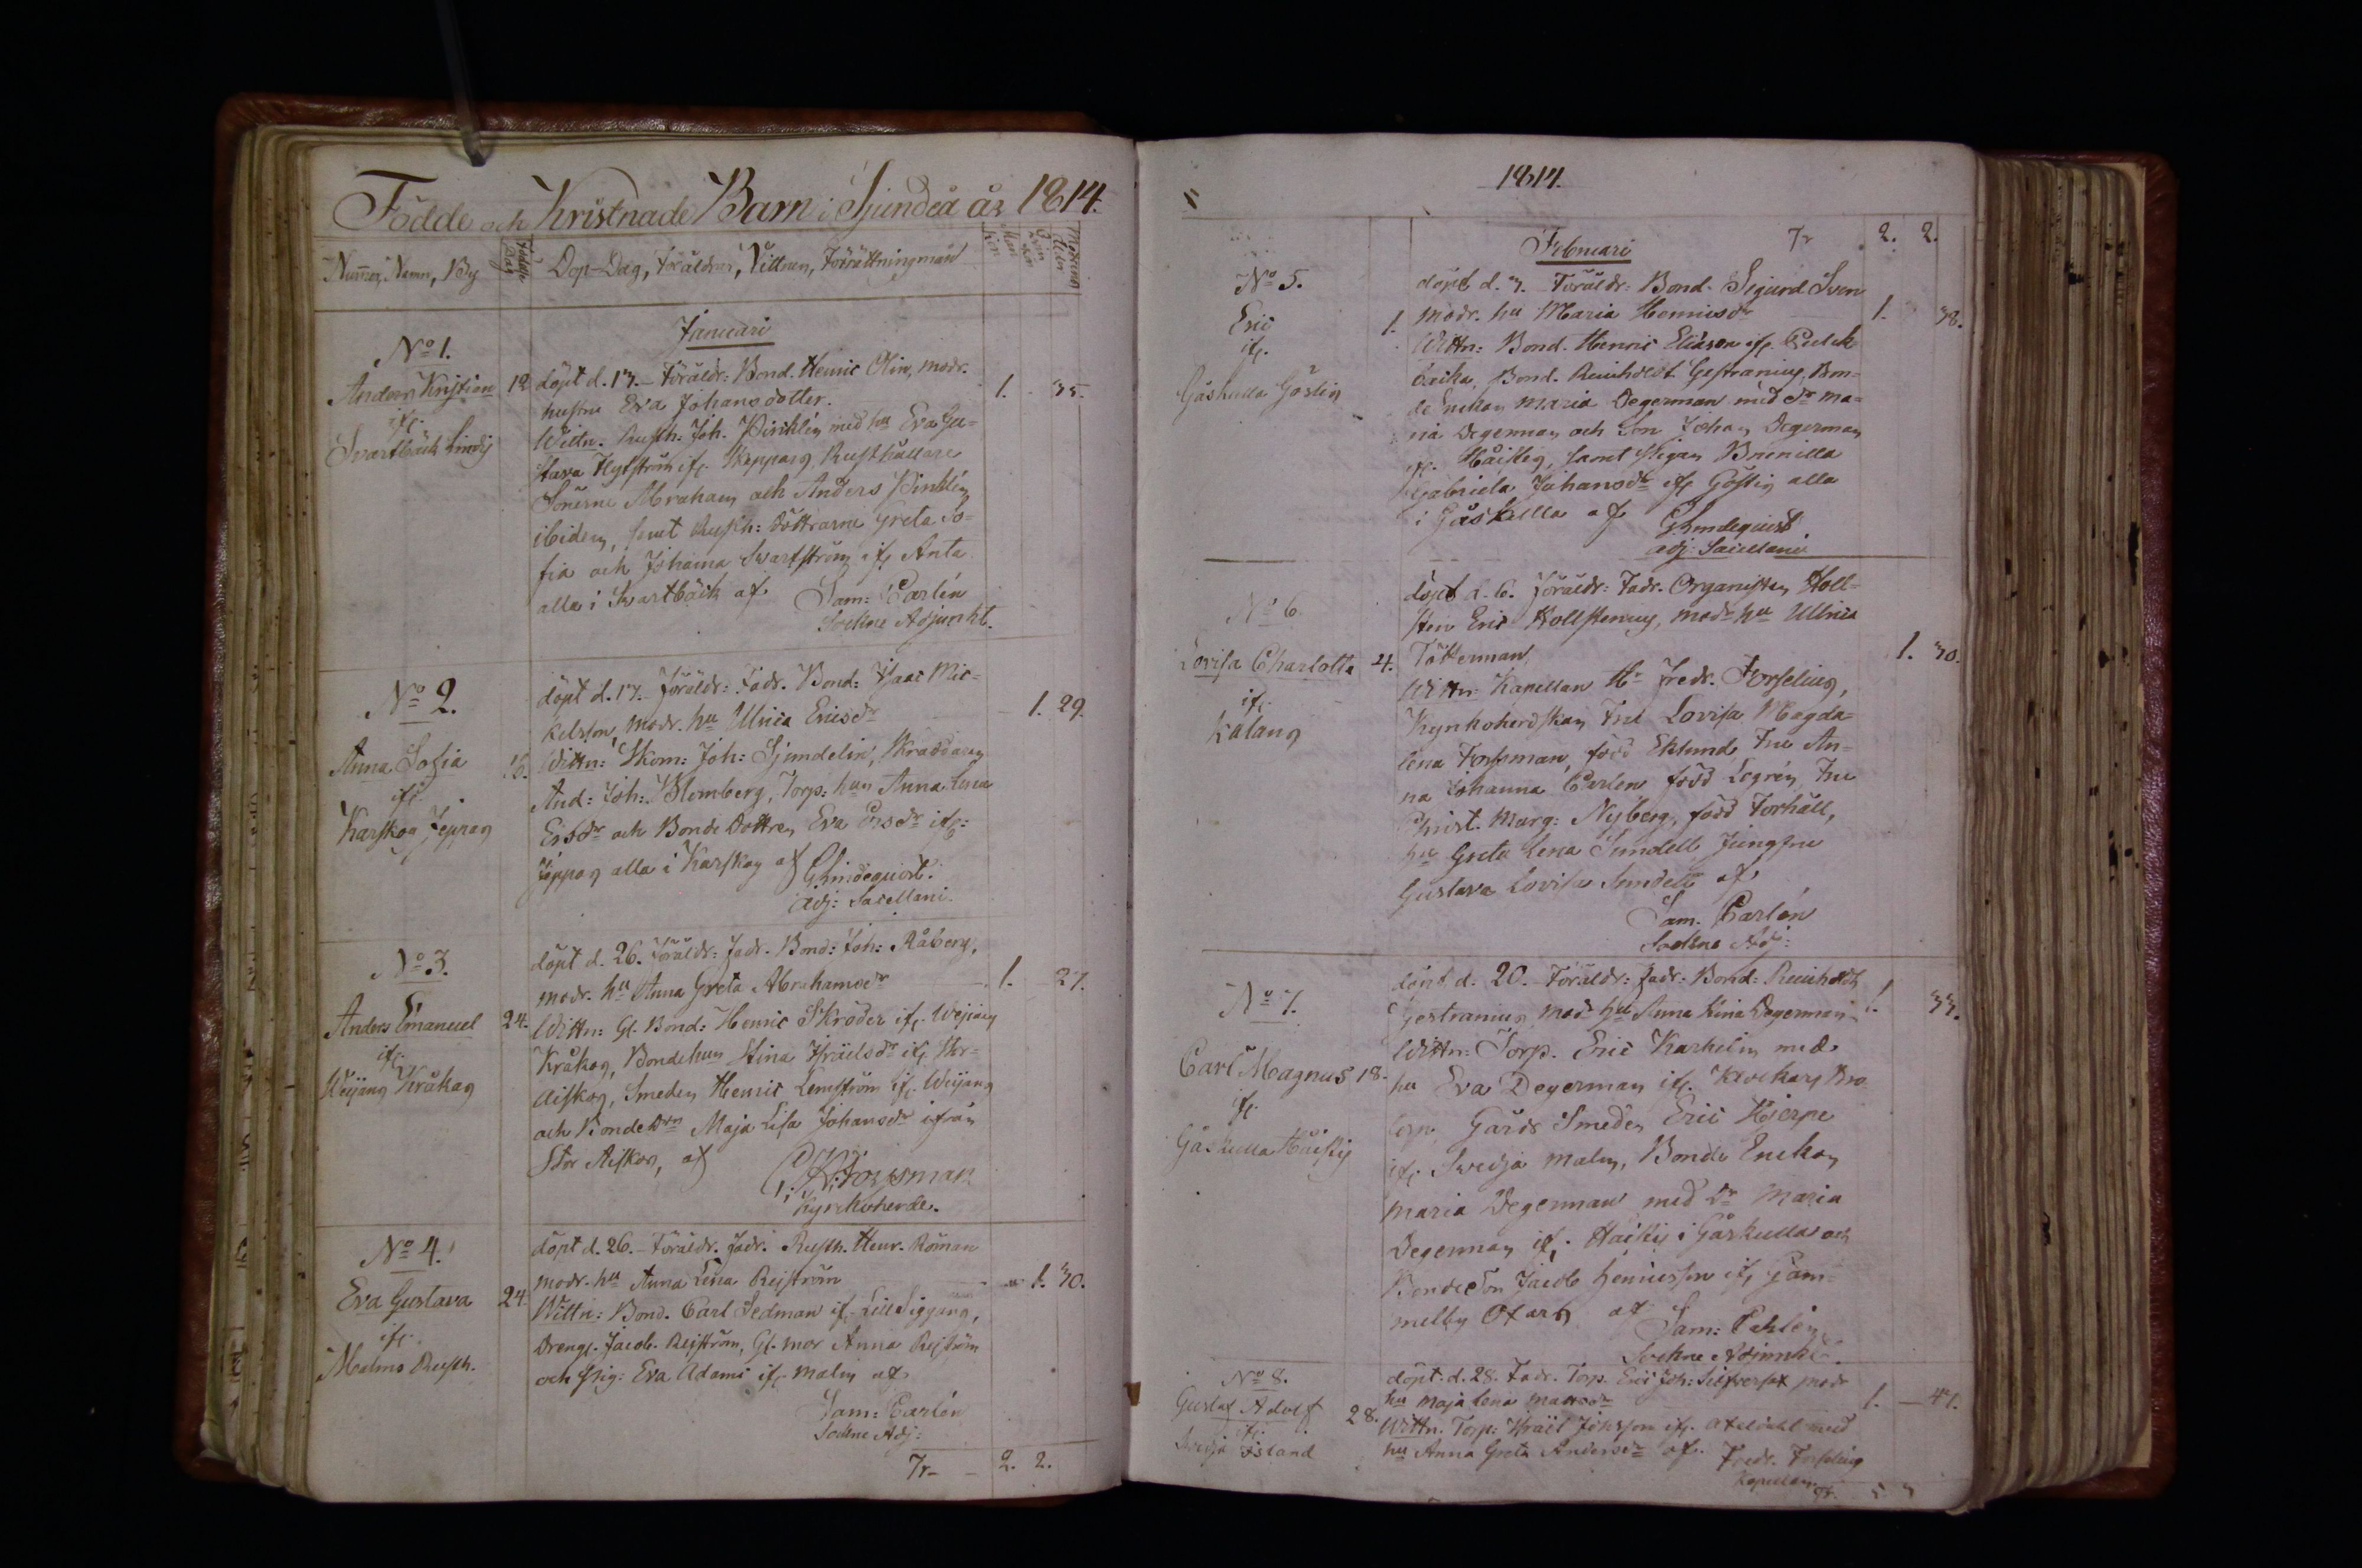 Födde och Kristnade Barn i Sjundeå år 1814.
Num̅er, Namn, By
Födelse Dag
Dop-Dag, Föräldrar, Vittnen, Förrättningsman
Man Kön
Qvin Kön
Modrens ålder
Januari
No 1.
Anders Kristian
if.
Svartbäck Lindis
12
döpt d. 17. Föräldr: Bond. Henric Olin, modr.
hustru Eva Johansdotter.
1. 35.
Wittn. Rusth: Joh. Pinklén med hu Eva Gu=
stava Flytström if. Skeppars, Rusthållare
Sönerne Abraham och Anders Pinklén
ibidem, samt Rusth: döttrarne Greta So=
fia och Johanna Svartström if. Anta
alla i Svartbäck af.
Sam: Carlén
Sockne Adjunkt.
No 2.
Anna Sofia
if.
Karskog Jeppas
16.
döpt d. 17. Föräldr: Fadr. Bond: Isaac Mic=
kelsson, modr. hu Ulrica Ericsdr
1. 29.
Wittn: Skom: Joh: Sjundelin, Skräddaren
And: Joh: Blomberg, Torp: hun Anna Lena
Ersdr och Bonde Dottren Eva Ersdr if:
Jeppas alla i Karskog af
G Lindequist.
Adj: Sacellani.
No 3.
Anders Emanuel
if.
Weijans Kråkas
24.
döpt d. 26. Föräldr: Fadr. Bond: Joh: Råberg,
modr. hu Anna Greta Abrahamsdr
1. 27.
Wittn: Gl. Bond: Henric Skröder if. Weijans
Kråkas, Bondehun Stina Israelsdr if. Stor=
Aiskos, Smeden Henric Lemström if. Weijans
och Bonde Drn Maja Lisa Johansdr ifrån
Stor Aiskos, af
Forssman
Kyrckoherde.
No 4.
Eva Gustava
if.
Malms Rusth.
24.
döpt d. 26. Föräldr. Fadr. Rusth. Henr. Roman
modr. hu Anna Lena Reiström
1. 30.
Wittn: Bond. Carl Sedman if. Lill Siggans,
Dreng. Jacob Reiström, Gl. mor Anna Reiström
och Pig: Eva Adams if. Malm af
Sam: Carlén
Sockne Adj:
Tr. 2. 2.
1814.
Februari
Tr 2. 2.
No 5.
Eric
if.
Gåskulla Göstis
1.
döpt d. 3. Föräldr: Bond. Sigurd Sven
modr. hu Maria Henricsdr
1. 38.
Wittn: Bond. Henric Eliason if.
backa, Bond. Reinholdt Gestranius, Bon=
de Enckan Maria Degerman med dr Ma=
ria Degerman och Son Johan Degerman
if. Häikis, samt Pigan Brunilla
Gabriela Johansdr if. Göstis alla
i Gåskulla af
G Lindequist
adj: Sacellani.
No 6.
Lovisa Charlotta
if.
Kalans
4.
döpt d. 6. Föräldr: Fadr. Organisten Holl=
sten Eric Hollstenius, modr hu Ulrica
Tötterman
1. 30.
Wittn: Kapellan Hr Fredr. Forselius,
Kyrkoherdskan Fru Lovisa Magda=
lena Forssman, född Eklund, Fru An=
na Johanna Carlén född Legrén, Fru
Christ. Marg: Nyberg, född Forhäll,
hu Greta Lena Sundell Jungfru
Gustava Lovisa Sundell af
Sam. Carlén
Sockne Adj:
No 7.
Carl Magnus
if.
Gåskulla Häikis
18.
döpt d: 20. Föräldr: Fadr: Bond: Reinholdt
Gestranius, modr hu Anna Stina Degerman
1. 33.
Wittn: Torp. Eric Karhelin med
hu Eva Degerman if. Krockars Bro
torp Gårds Smeden Eric Hjerpe
if. Svidja Malm, Bonde Enckan
Maria Degerman med dr Maria
Degerman if. Häikis i Gåskulla och
Bonde Son Jacob Henricsson if. Gam=
melby Oxars af
Sam: Carlén
Sockne Adjunkt.
No 8.
Gustaf Adolf
if.
Svidja Island
28.
döpt d. 28. Fadr. Torp. Eric Joh: Silfverfot modr
hu Maja Lena Matsdr
1. 41.
Wittn. Torp: Israel Johsson if. med
hu Anna Greta Andersdr af. Fredr. Forselius
Kapellan
Tr.